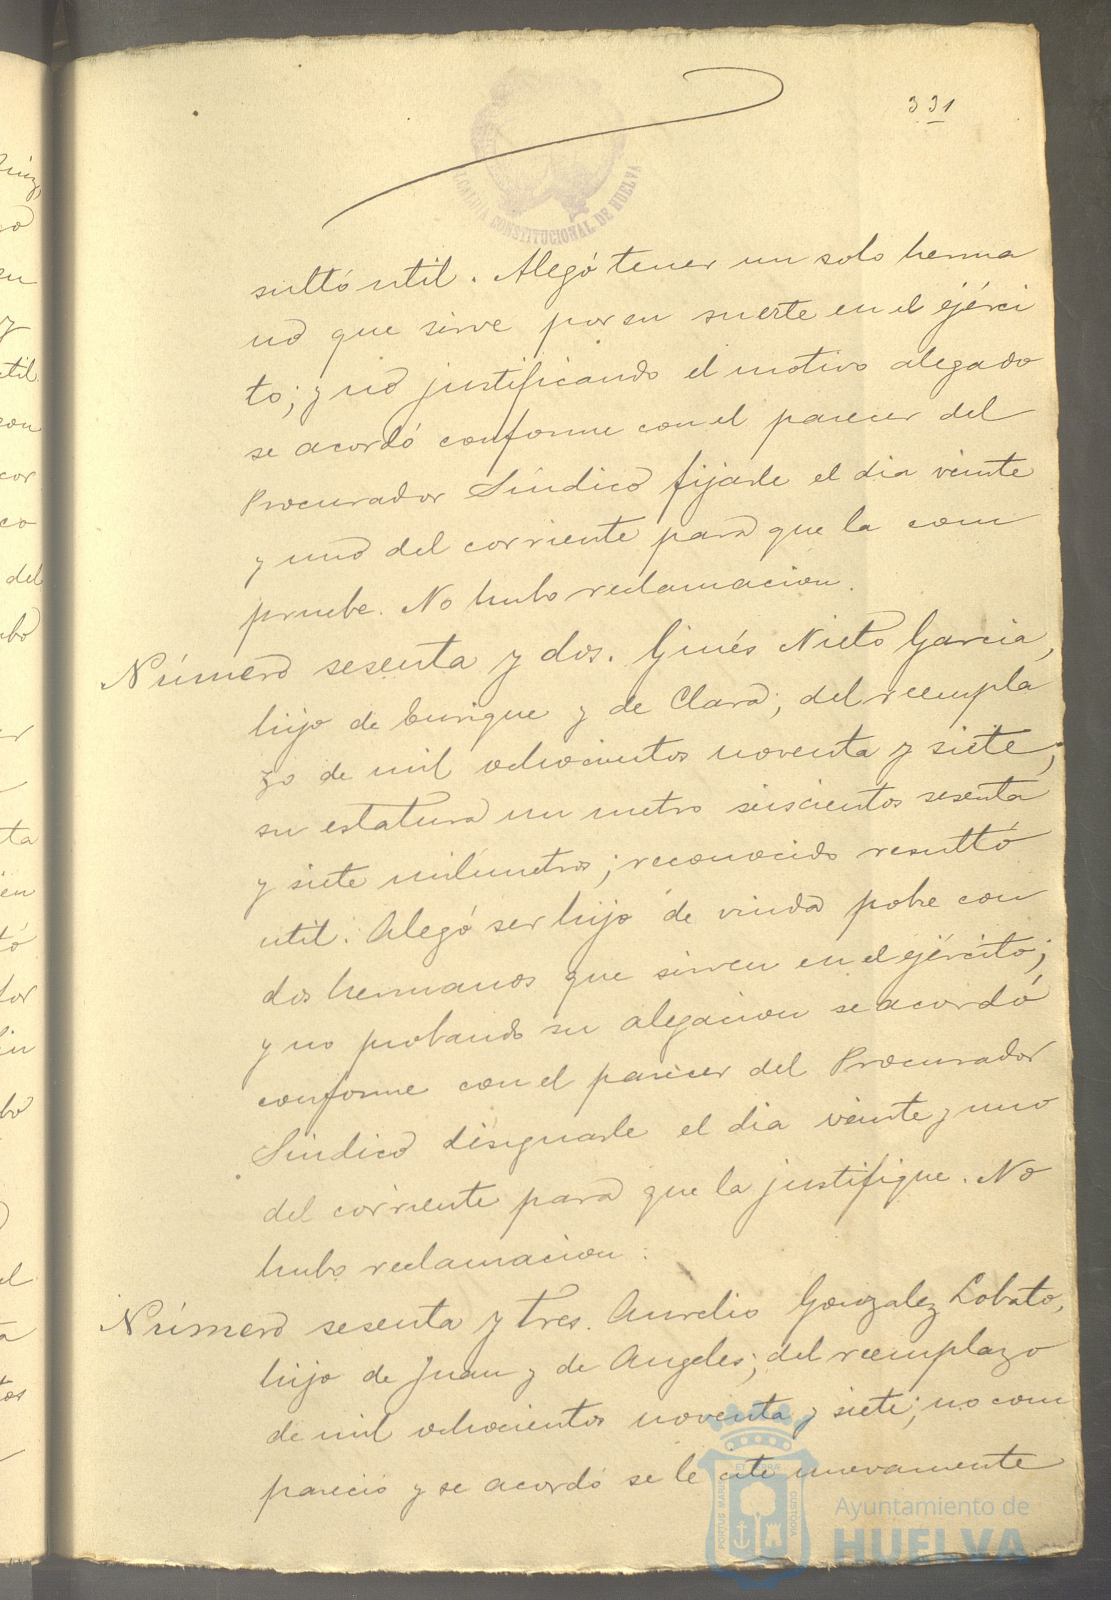 331
ALCALDIA CONSTITUCIONAL DE HUELVA
sultó util. Alegó tener un solo herma
no que sirve por su suerte en el ejérci
to; y no justificando el motivo alegado
se acordó conforme con el parecer del
Procurador Síndico fijarle el dia veinte
y uno del corriente para que la com
pruebe. No hubo reclamacion.
Número sesenta y dos. Ginés Nieto Garcia,
hijo de Enrique y de Clara; del reempla
zo de mil ochocientos noventa y siete;
su estatura un metro seiscientos sesenta
y siete milímetros; reconocido resultó
util. Alegó ser hijo de viuda pobre con
dos hermanos que sirven en el ejército;
y no probando su alegacion se acordó
conforme con el parecer del Procurador
Síndico designarle el dia veinte y uno
del corriente para que la justifique. No
hubo reclamacion.
Número sesenta y tres. Aurelio Gonzalez Lobato,
hijo de Juan y de Angeles; del reemplazo
de mil ochocientos noventa y siete; no com
pareció y se acordó se le cite nuevamente
PORTUS MARIS ET TERRAE CUSTODIA
Ayuntamiento de
HUELVA